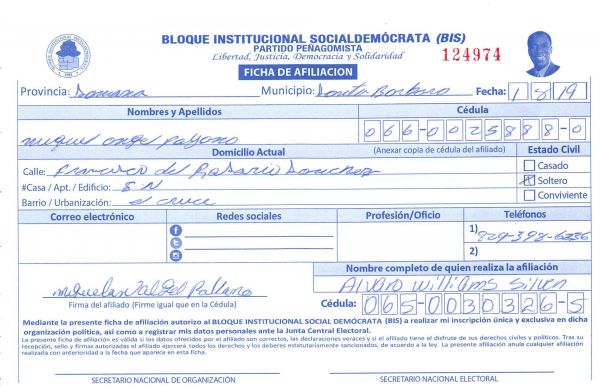 BLOQUE INSTITUCIONAL SOCIALDEMÓCRATA (BIS)
PARTIDO PEÑAGOMISTA
Libertad, Justicia, Democracia y Solidaridad
124974
FICHA DE AFILIACION
Provincia: Samana Municipio: Santa Barbara Fecha: 1 8 19
Nombres y Apellidos Cédula
miguel angel 066-0025888-0
Domicilio Actual (Anexar copia de cédula del afiliado) Estado Civil
Calle: Francisco del Rosario Sanchez Casado
#Casa / Apt. / Edificio: S N Soltero
Barrio / Urbanización: el cruce Conviviente
Correo electrónico Redes sociales Profesión/Oficio Teléfonos
1) 829-398-6336
2)
Nombre completo de quien realiza la afiliación
Alvaro Williams Silven
Firma del afiliado (Firme igual que en la Cédula) Cédula: 065-0030326-5
Mediante la presente ficha de afiliación autorizo al BLOQUE INSTITUCIONAL SOCIAL DEMÓCRATA (BIS) a realizar mi inscripción única y exclusiva en dicha
organización política, así como a registrar mis datos personales ante la Junta Central Electoral.
La presente ficha de afiliación es válida si los datos ofrecidos por el afiliado son correctos, las declaraciones veraces y si el afiliado tiene el disfrute de sus derechos civiles y políticos. Tras su
recepción, sello y firmas autorizadas el afiliado ejercerá todos los derechos y los deberes estatutariamente sancionados, de acuerdo a la ley. La presente afiliación anula cualquier afiliación
realizada con anterioridad a la fecha que aparece en esta ficha.
SECRETARIO NACIONAL DE ORGANIZACIÓN SECRETARIO NACIONAL ELECTORAL